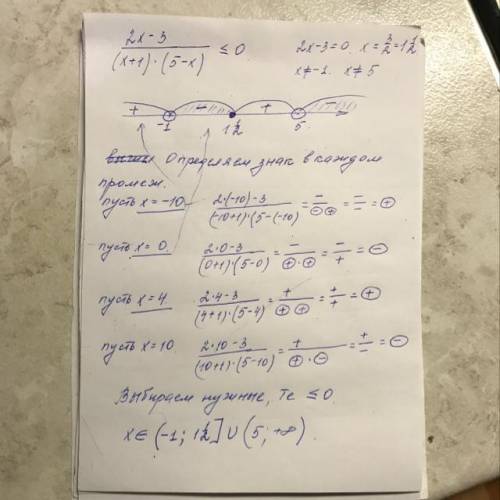 (2x-3)/((x+1)·(5-x)) ≤ 0
2x-3=0. x=3/2=1 1/2
x≠-1. x≠5
+ - + -
-1 1 1/2 5
Определяем знак в каждом
промеж.
пусть x=-10 (2·(-10)-3)/((-10+1)·(5-(-10)) = -/(⊖⊕) = -/- = ⊕
пусть x=0 (2·0-3)/((0+1)·(5-0)) = -/(⊕·⊕) = -/+ = ⊖
пусть x=4 (2·4-3)/((4+1)·(5-4)) = +/(⊕⊕) = +/+ = ⊕
пусть x=10 (2·10-3)/((10+1)·(5-10)) = +/(⊕·⊖) = +/- = ⊖
Выбираем нужные, те ≤0
x∈(-1; 1 1/2]∪(5; +∞).